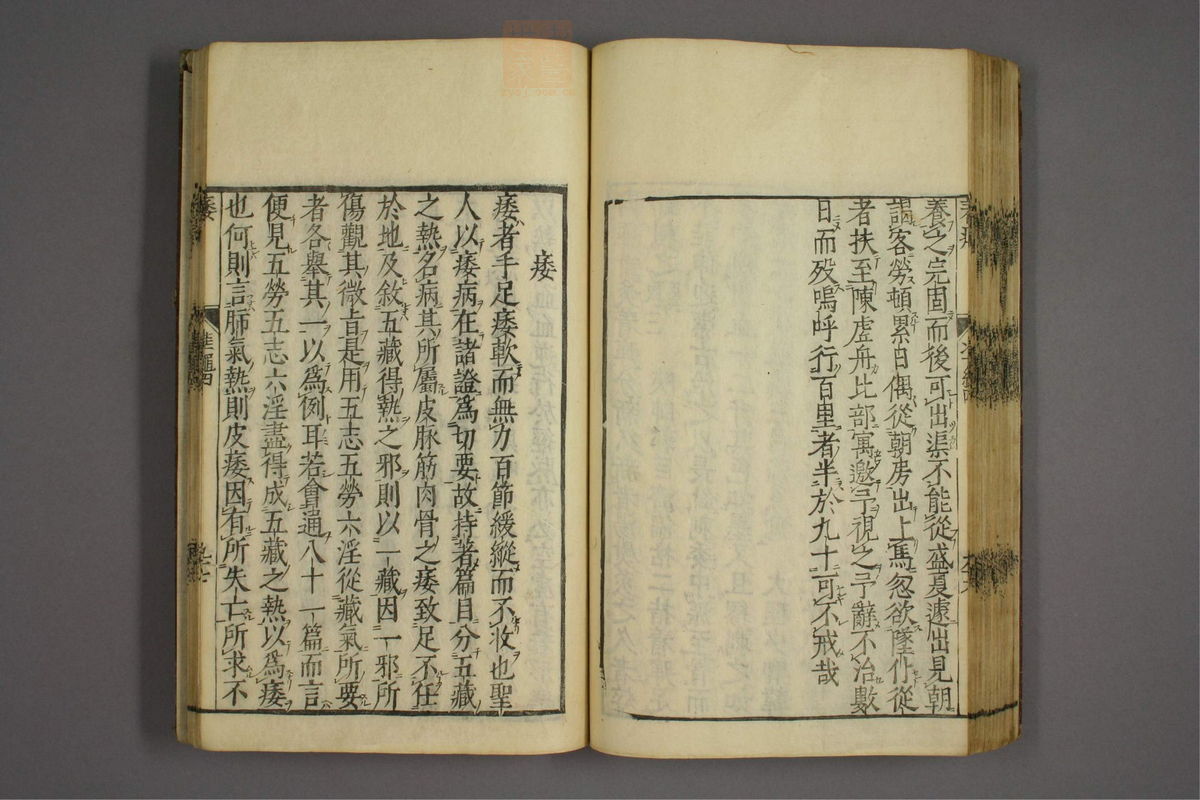 養之完固而後可出渠不能從盛夏遽出見朝
謁客勞頓累日偶從朝房出上馬忽欲墜仆從
者扶至陳虚舟比部寓邀予視之予辭不治數
日而殁嗚呼行百里者半於九十可不戒哉
痿
痿者手足痿軟而無力百節緩縱而不收也聖
人以痿病在諸證爲切要故持著篇目分五藏
之熱名病其所屬皮脉筋肉骨之痿致足不任
於地及敘五藏得熱之邪則以一藏因一邪所
傷觀其微旨是用五志五勞六淫從藏氣所要
者各舉其一以爲例耳若會通八十一篇而言
便見五勞五志六淫盡得成五藏之熱以爲痿
也何則言肺氣熱則皮痿因有所失亡所求不
痿